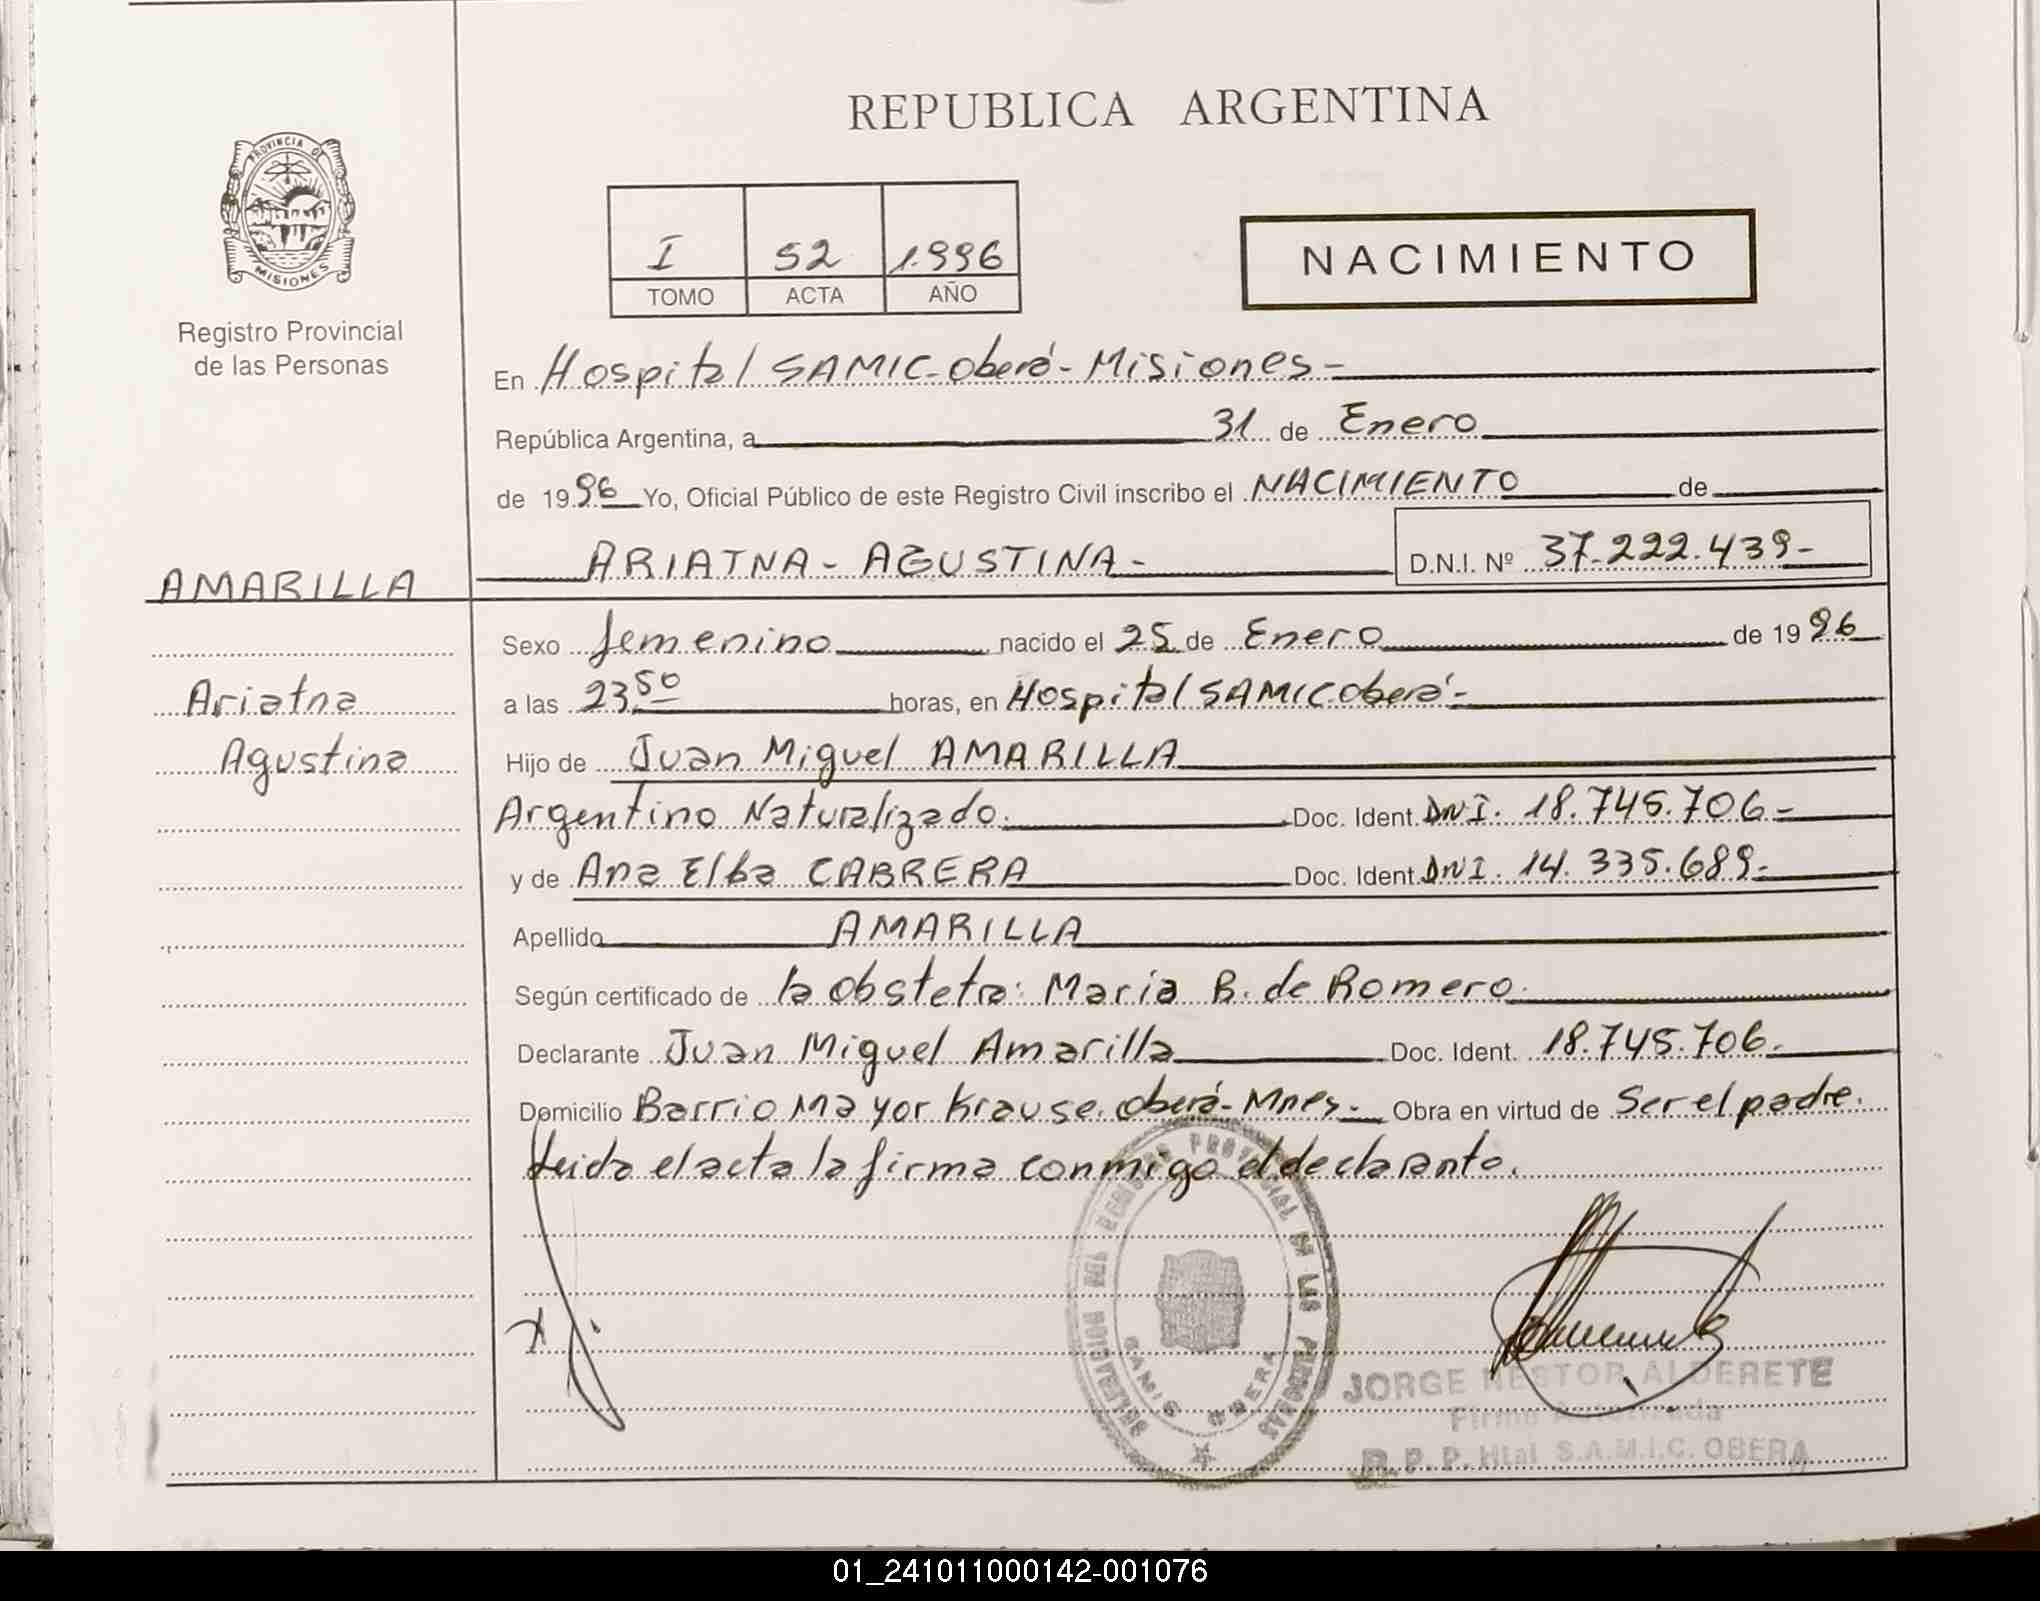 REPUBLICA ARGENTINA
PROVINCIA DE
MISIONES
Registro Provincial
de las Personas
I 52 1.996
TOMO ACTA AÑO
NACIMIENTO
En Hospital SAMIC-Oberá-Misiones-
República Argentina, a 31 de Enero
de 1996 Yo, Oficial Público de este Registro Civil inscribo el NACIMIENTO de
ARIATNA-AGUSTINA- D.N.I. Nº 37.222.439-
AMARILLA
Ariatna
Agustina
Sexo femenino nacido el 25 de Enero de 1996
a las 23,50 horas, en Hospital SAMIC Oberá-
Hijo de Juan Miguel AMARILLA
Argentino Naturalizado. Doc. Ident. DNI. 18.745.706-
y de Ana Elba CABRERA Doc. Ident. DNI. 14.335.689-
Apellido AMARILLA
Según certificado de la obsteta: Maria B. de Romero.
Declarante Juan Miguel Amarilla Doc. Ident. 18.745.706.
Domicilio Barrio Mayor Krause. Oberá-Mnes- Obra en virtud de Ser el padre.
Leida el acta la firma conmigo el declarante.
DELEGACION DEL REGISTRO PROVINCIAL DE LAS PERSONAS
SAMIC OBERA
JORGE NESTOR ALDERETE
Firma Autorizada
R.P.P. Htal S.A.M.I.C. OBERA
01_241011000142-001076